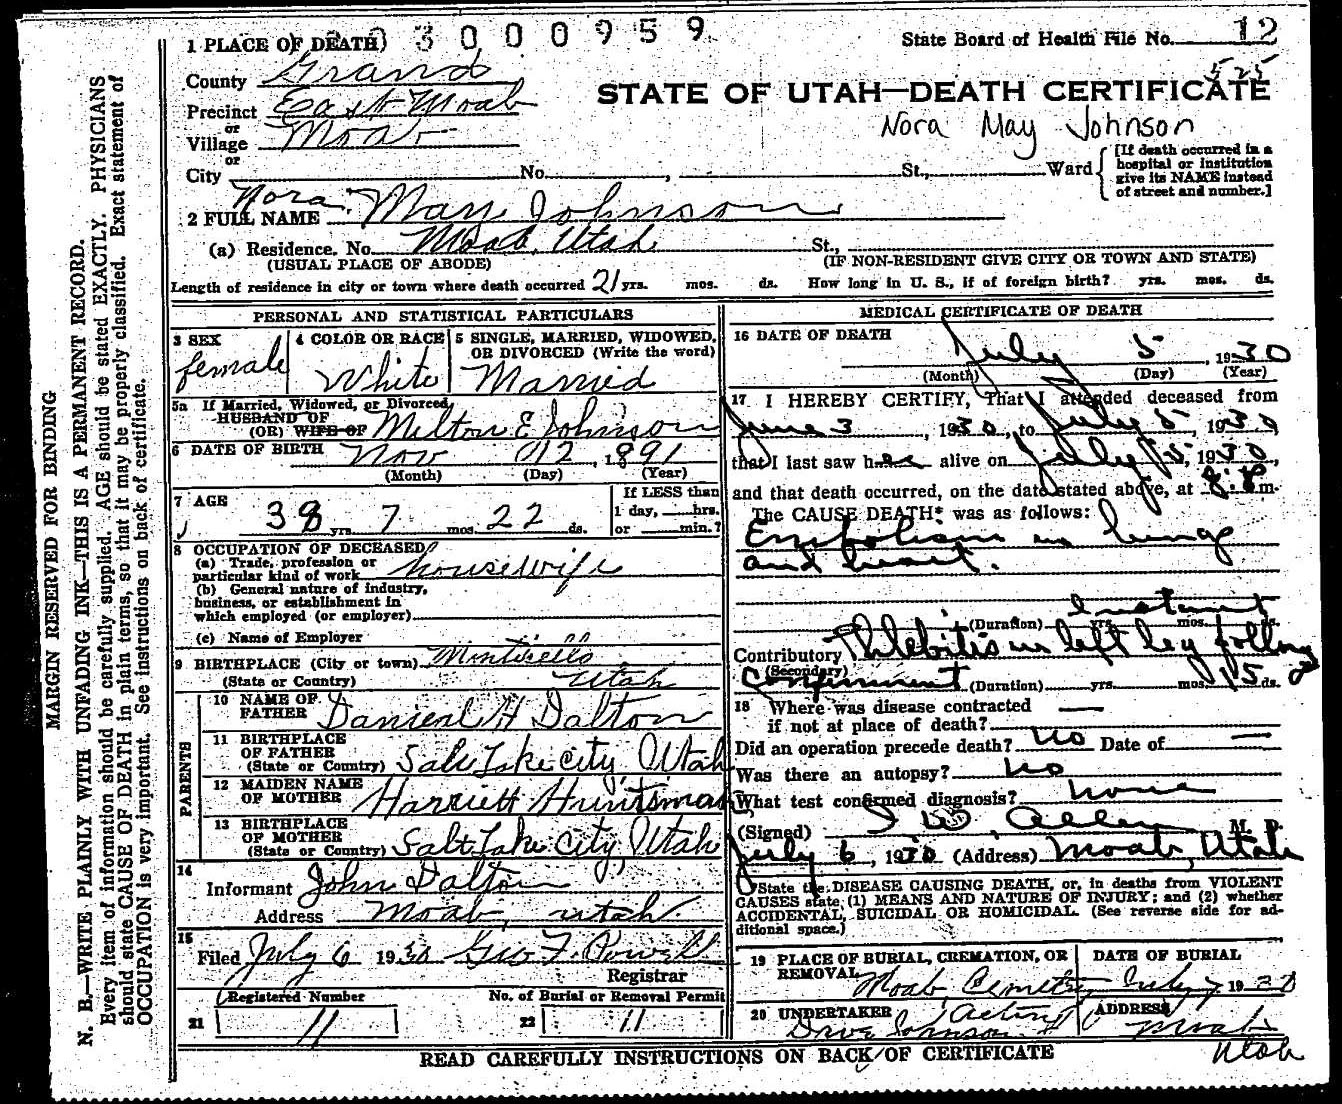 3 0 0 0 9 5 9
1 PLACE OF DEATH
State Board of Health File No. 12
525
County Grand
STATE OF UTAH—DEATH CERTIFICATE
Precinct East Moab
Nora May Johnson
or
Village Moab
or
City No. , St., Ward
[If death occurred in a
hospital or institution
give its NAME instead
of street and number.]
2 FULL NAME Nora May Johnson
(a) Residence. No. Moab, Utah St.,
(USUAL PLACE OF ABODE) (IF NON-RESIDENT GIVE CITY OR TOWN AND STATE)
Length of residence in city or town where death occurred 21 yrs. mos. ds. How long in U. S., if of foreign birth? yrs. mos. ds.
PERSONAL AND STATISTICAL PARTICULARS
3 SEX
female
4 COLOR OR RACE
White
5 SINGLE, MARRIED, WIDOWED,
OR DIVORCED (Write the word)
Married
5a If Married, Widowed, or Divorced
HUSBAND OF
(OR) WIFE OF Milton E Johnson
6 DATE OF BIRTH Nov 12, 1891
(Month) (Day) (Year)
7 AGE
38 yrs. 7 mos. 22 ds.
If LESS than
1 day, hrs.
or min.?
8 OCCUPATION OF DECEASED
(a) Trade, profession or
particular kind of work housewife
(b) General nature of industry,
business, or establishment in
which employed (or employer)
(c) Name of Employer
9 BIRTHPLACE (City or town) Monticello
(State or Country) Utah
PARENTS
10 NAME OF
FATHER Danieal H Dalton
11 BIRTHPLACE
OF FATHER
(State or Country) Salt Lake City, Utah
12 MAIDEN NAME
OF MOTHER Harriett Huntsman
13 BIRTHPLACE
OF MOTHER
(State or Country) Salt Lake City, Utah
14
Informant John Dalton
Address Moab, Utah.
15
Filed July 6 1930 Geo F. Powell
Registrar
Registered Number
21 11
No. of Burial or Removal Permit
22 11
MEDICAL CERTIFICATE OF DEATH
16 DATE OF DEATH
July 5, 1930
(Month) (Day) (Year)
17 I HEREBY CERTIFY, That I attended deceased from
June 3, 1930, to July 5, 1930,
that I last saw her alive on July 5, 1930,
and that death occurred, on the date stated above, at m.
The CAUSE DEATH* was as follows:
Embolism in lungs
and heart.
Instant
(Duration) yrs. mos. ds.
Contributory Phlebitis in left leg follong
(Secondary)
confinement (Duration) yrs. mos. 15 ds.
18 Where was disease contracted
if not at place of death? —
Did an operation precede death? no Date of —
Was there an autopsy? no
What test confirmed diagnosis? none
(Signed) I W. Allen M. D.
July 6, 1930 (Address) Moab, Utah
*State the DISEASE CAUSING DEATH, or, in deaths from VIOLENT
CAUSES state (1) MEANS AND NATURE OF INJURY; and (2) whether
ACCIDENTAL, SUICIDAL OR HOMICIDAL. (See reverse side for ad-
ditional space.)
19 PLACE OF BURIAL, CREMATION, OR
REMOVAL
Moab Cemetry
DATE OF BURIAL
July 7 1930
20 UNDERTAKER Acting
Dave Johnson
ADDRESS
Moab
Utah
READ CAREFULLY INSTRUCTIONS ON BACK OF CERTIFICATE
MARGIN RESERVED FOR BINDING
N. B.—WRITE PLAINLY WITH UNFADING INK—THIS IS A PERMANENT RECORD.
Every item of information should be carefully supplied. AGE should be stated EXACTLY. PHYSICIANS
should state CAUSE OF DEATH in plain terms, so that it may be properly classified. Exact statement of
OCCUPATION is very important. See instructions on back of certificate.